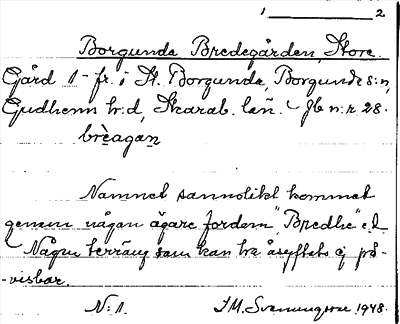 1 2
Borgunda Bredegården, Stora.
Gård 1- fr. i St. Borgunda, Borgunda s:n,
Gudhems h:d, Skarab. län. Jb n:r 28.
brèagan
Namnet sannolikt kommet
genom någon ägare fordom "Bredhe" e.d.
Någon terräng som kan ha åsyftats ej på-
-visbar.
N:1. J.M. Svenungsson 1948.